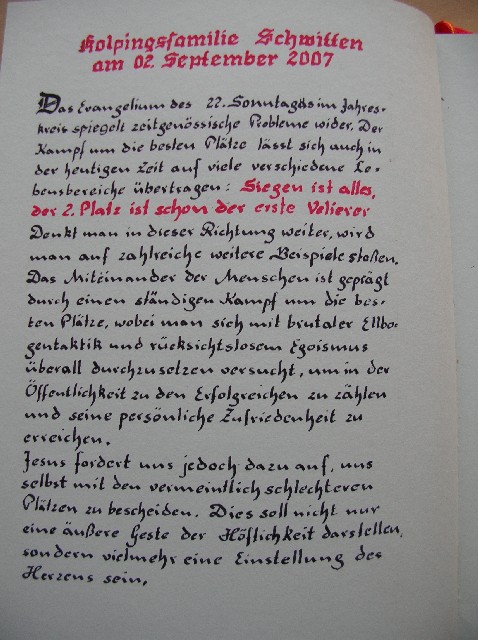 Kolpingsfamilie Schwitten
am 02. September 2007
Das Evangelium des 22. Sonntags im Jahres-
kreis spiegelt zeitgenössische Probleme wider. Der
Kampf um die besten Plätze lässt sich auch in
der heutigen Zeit auf viele verschiedene Le-
bensbereiche übertragen: Siegen ist alles,
der 2. Platz ist schon der erste Velierer
Denkt man in dieser Richtung weiter, wird
man auf zahlreiche weitere Beispiele stoßen.
Das Miteinander der Menschen ist geprägt
durch einen ständigen Kampf um die bes-
ten Plätze, wobei man sich mit brutaler Ellbo-
gentaktik und rücksichtslosem Egoismus
überall durchzusetzen versucht, um in der
Öffentlichkeit zu den Erfolgreichen zu zählen
und seine persönliche Zufriedenheit zu
erreichen.
Jesus fordert uns jedoch dazu auf, uns
selbst mit den vermeintlich schlechteren
Plätzen zu bescheiden. Dies soll nicht nur
eine äußere Geste der Höflichkeit darstellen,
sondern vielmehr eine Einstellung des
Herzens sein.